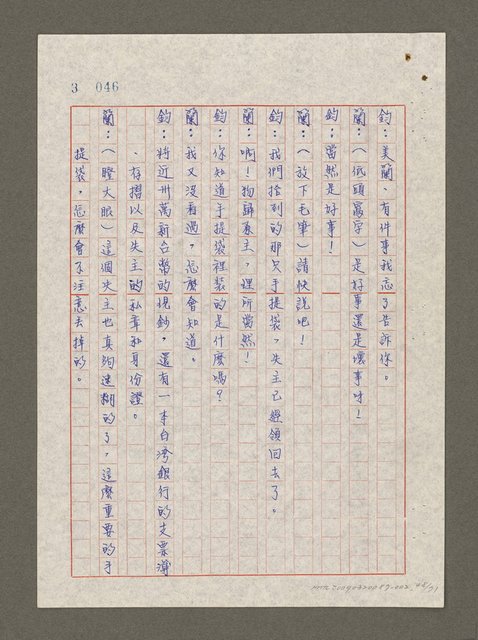 3 046
鈞：美蘭，有件事我忘了告訴你。
蘭：（低頭寫字）是好事還是壞事呀！
鈞：當然是好事！
蘭：（放下毛筆）請快說吧！
鈞：我們拾到的那只手提袋，失主已經領回去了。
蘭：啊！物歸原主，理所當然！
鈞：你知道手提袋裡裝的是什麼嗎？
蘭：我又沒看過，怎麼會知道。
鈞：將近卅萬新台幣的現鈔，還有一本台灣銀行的支票簿
、存摺以及失主的私章和身份證。
蘭：（瞪大眼）這個失主也真夠迷糊的了，這麼重要的手
提袋，怎麼會不注意去掉的。